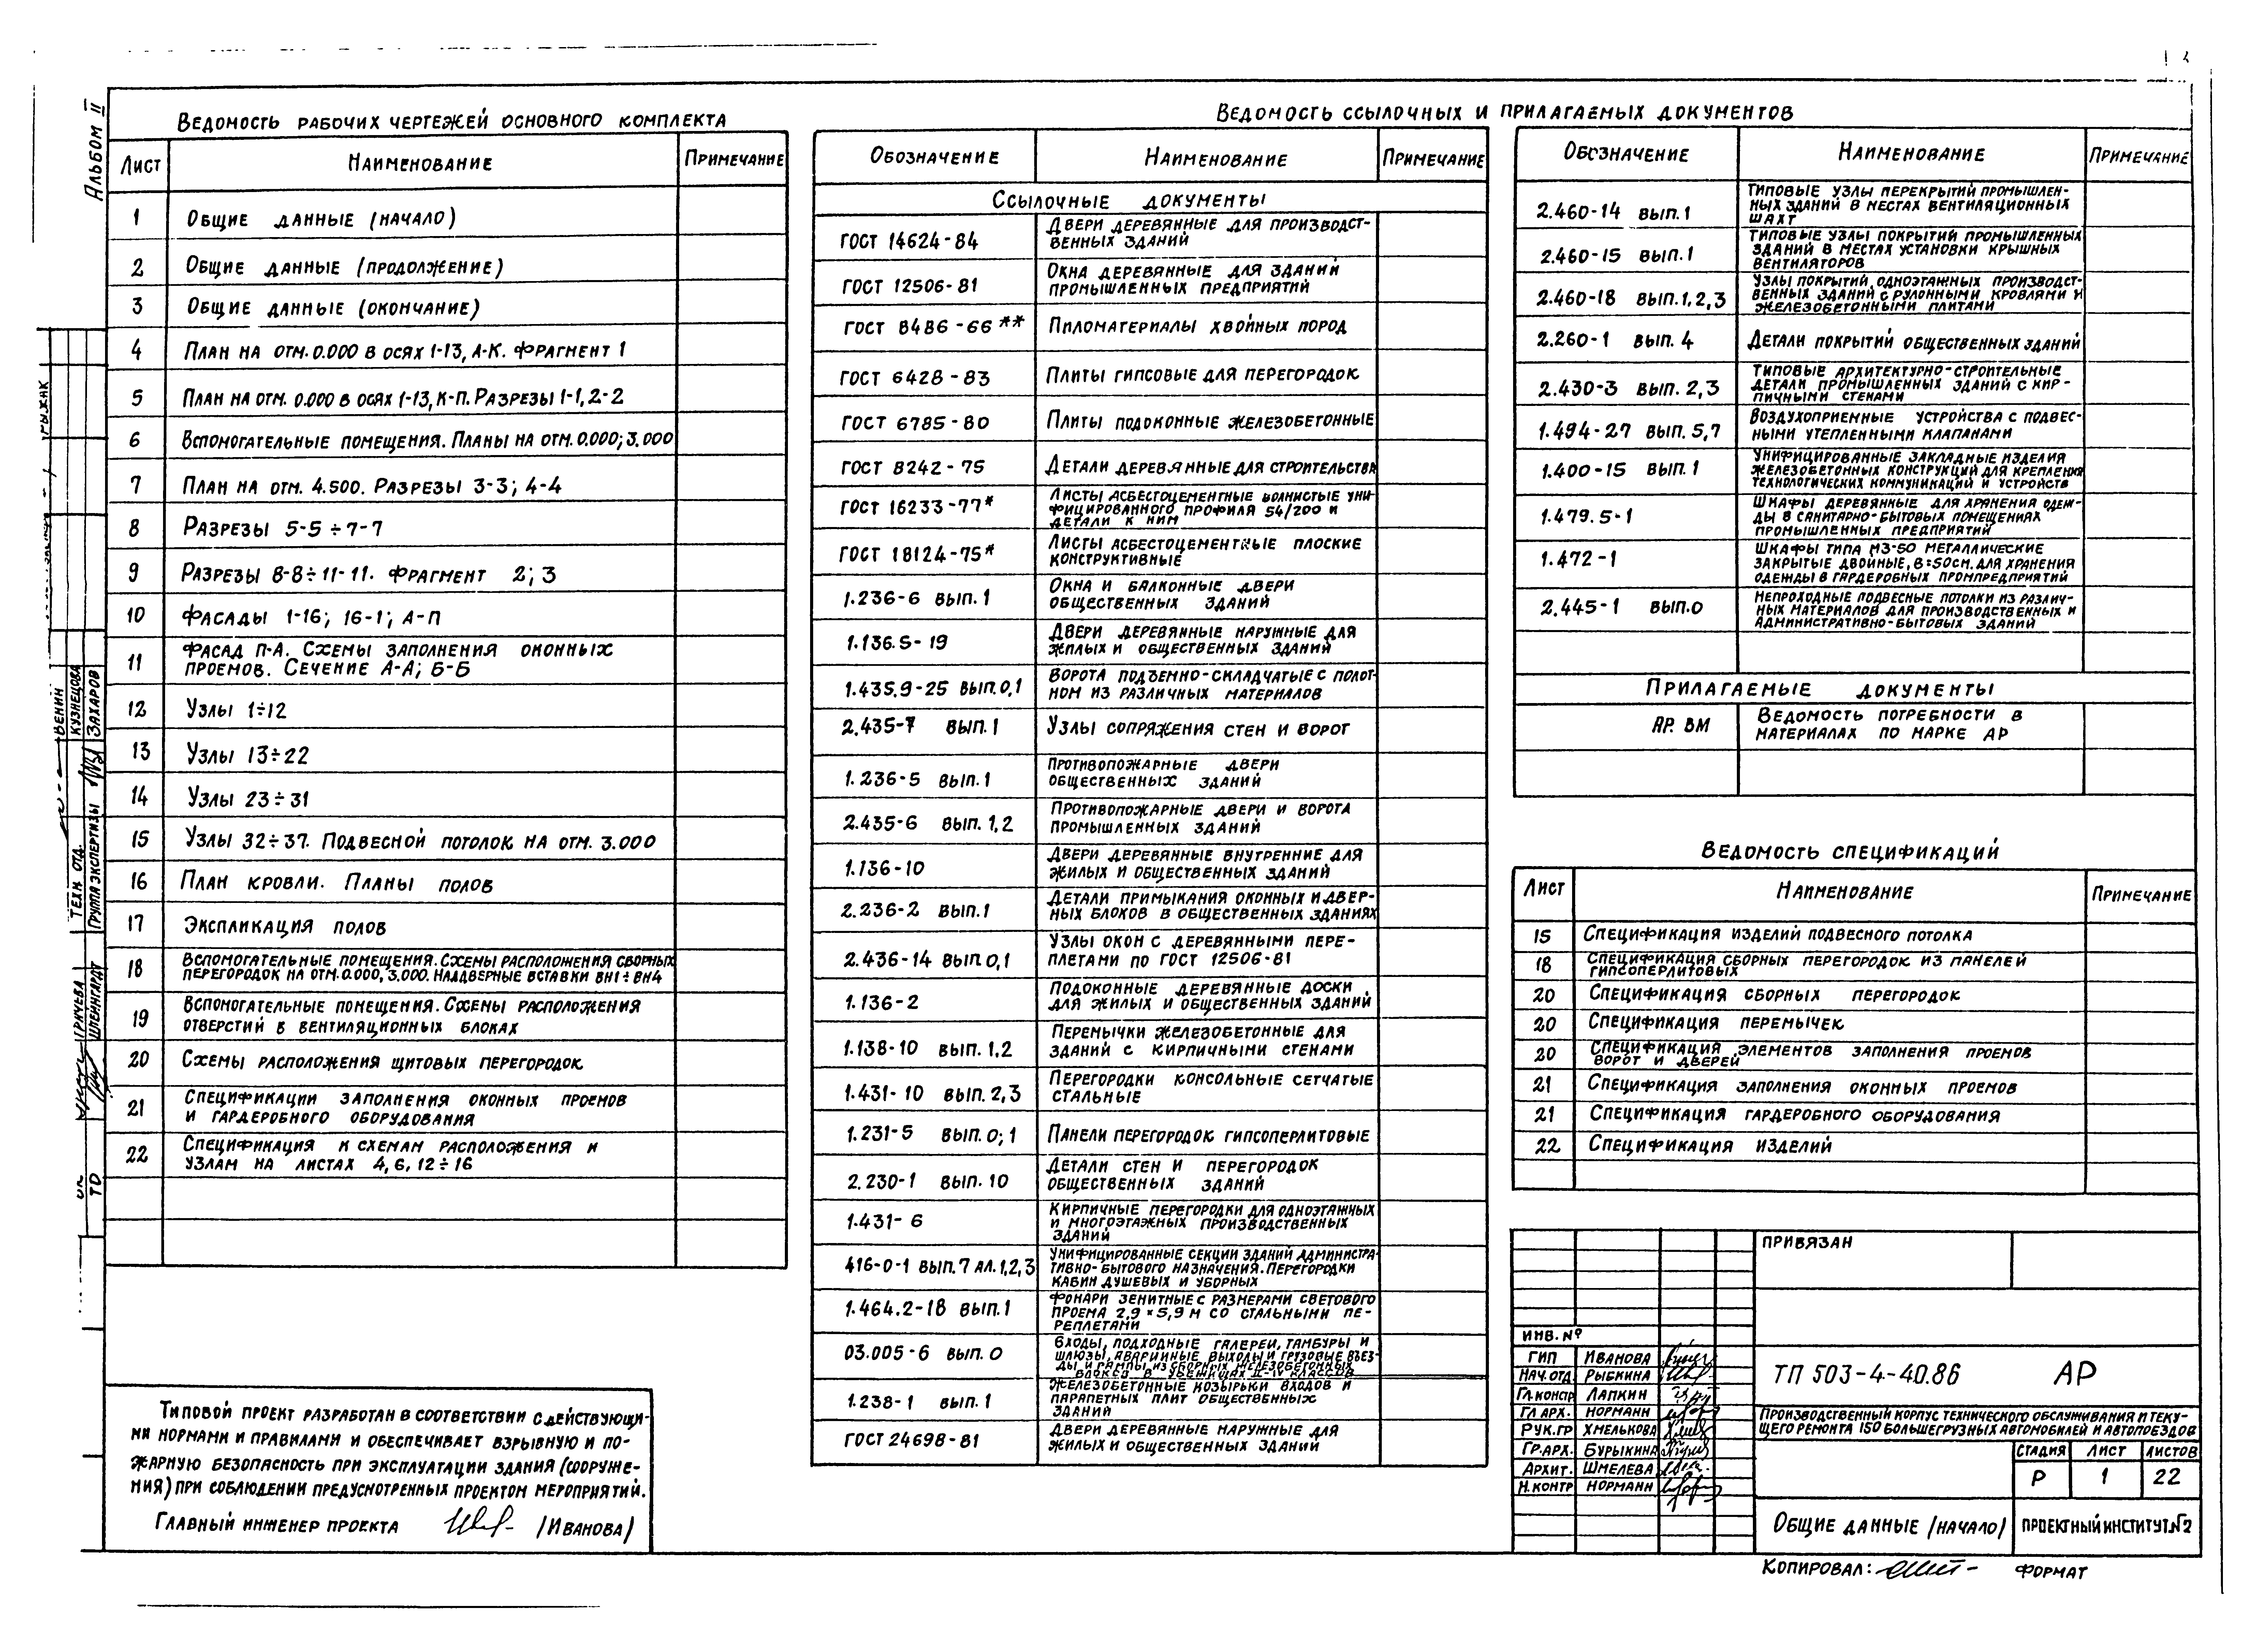 Альбом II
Ведомость рабочих чертежей основного комплекта
Лист Наименование Примечание
1 Общие данные (начало)
2 Общие данные (продолжение)
3 Общие данные (окончание)
4 План на отм. 0.000 в осях 1-13, А-К. Фрагмент 1
5 План на отм. 0.000 в осях 1-13, К-П. Разрезы 1-1, 2-2
6 Вспомогательные помещения. Планы на отм. 0.000; 3.000
7 План на отм. 4.500. Разрезы 3-3; 4-4
8 Разрезы 5-5 ÷ 7-7
9 Разрезы 8-8 ÷ 11-11. Фрагмент 2; 3
10 Фасады 1-16; 16-1; А-П
11 Фасад П-А. Схемы заполнения оконных
проемов. Сечение А-А; Б-Б
12 Узлы 1÷12
13 Узлы 13÷22
14 Узлы 23÷31
15 Узлы 32÷37. Подвесной потолок на отм. 3.000
16 План кровли. Планы полов
17 Экспликация полов
18 Вспомогательные помещения. Схемы расположения сборных
перегородок на отм. 0.000, 3.000. Наддверные вставки ВН1÷ВН4
19 Вспомогательные помещения. Схемы расположения
отверстий в вентиляционных блоках
20 Схемы расположения щитовых перегородок
21 Спецификации заполнения оконных проемов
и гардеробного оборудования
22 Спецификация к схемам расположения и
узлам на листах 4, 6, 12÷16
Типовой проект разработан в соответствии с действующи-
ми нормами и правилами и обеспечивает взрывную и по-
жарную безопасность при эксплуатации здания (сооруже-
ния) при соблюдении предусмотренных проектом мероприятий.
Главный инженер проекта (Иванова)
Ведомость ссылочных и прилагаемых документов
Обозначение Наименование Примечание
Ссылочные документы
ГОСТ 14624-84 Двери деревянные для производст-
венных зданий
ГОСТ 12506-81 Окна деревянные для зданий
промышленных предприятий
ГОСТ 8486-66** Пиломатериалы хвойных пород
ГОСТ 6428-83 Плиты гипсовые для перегородок
ГОСТ 6785-80 Плиты подоконные железобетонные
ГОСТ 8242-75 Детали деревянные для строительства
ГОСТ 16233-77* Листы асбестоцементные волнистые уни-
фицированного профиля 54/200 и
детали к ним
ГОСТ 18124-75* Листы асбестоцементные плоские
конструктивные
1.236-6 вып. 1 Окна и балконные двери
общественных зданий
1.136.5-19 Двери деревянные наружные для
жилых и общественных зданий
1.435.9-25 вып. 0,1 Ворота подъемно-складчатые с полот-
ном из различных материалов
2.435-7 вып. 1 Узлы сопряжения стен и ворот
1.236-5 вып. 1 Противопожарные двери
общественных зданий
2.435-6 вып. 1,2 Противопожарные двери и ворота
промышленных зданий
1.136-10 Двери деревянные внутренние для
жилых и общественных зданий
2.236-2 вып. 1 Детали примыкания оконных и двер-
ных блоков в общественных зданиях
2.436-14 вып 0,1 Узлы окон с деревянными пере-
плетами по ГОСТ 12506-81
1.136-2 Подоконные деревянные доски
для жилых и общественных зданий
1.138-10 вып. 1,2 Перемычки железобетонные для
зданий с кирпичными стенами
1.431-10 вып. 2,3 Перегородки консольные сетчатые
стальные
1.231-5 вып. 0; 1 Панели перегородок гипсоперлитовые
2.230-1 вып. 10 Детали стен и перегородок
общественных зданий
1.431-6 Кирпичные перегородки для одноэтажных
и многоэтажных производственных
зданий
416-0-1 вып. 7 ал. 1,2,3 Унифицированные секции зданий администра-
тивно-бытового назначения. Перегородки
кабин душевых и уборных
1.464.2-18 вып. 1 Фонари зенитные с размерами светового
проема 2,9×5,9 м со стальными пе-
реплетами
03.005-6 вып. 0 Входы, подходные галереи, тамбуры и
шлюзы, аварийные выходы и грузовые въез-
ды и рампы из сборных железобетонных
блоков в убежищах II-IV классов
1.238-1 вып. 1 Железобетонные козырьки входов и
парапетных плит общественных
зданий
ГОСТ 24698-81 Двери деревянные наружные для
жилых и общественных зданий
Обозначение Наименование Примечание
2.460-14 вып. 1 Типовые узлы перекрытий промышлен-
ных зданий в местах вентиляционных
шахт
2.460-15 вып. 1 Типовые узлы покрытий промышленных
зданий в местах установки крышных
вентиляторов
2.460-18 вып. 1,2,3 Узлы покрытий одноэтажных производст-
венных зданий с рулонными кровлями и
железобетонными плитами
2.260-1 вып. 4 Детали покрытий общественных зданий
2.430-3 вып. 2,3 Типовые архитектурно-строительные
детали промышленных зданий с кир-
пичными стенами
1.494-27 вып. 5,7 Воздухоприемные устройства с подвес-
ными утепленными клапанами
1.400-15 вып. 1 Унифицированные закладные изделия
железобетонных конструкций для крепления
технологических коммуникаций и устройств
1.479.5-1 Шкафы деревянные для хранения одеж-
ды в санитарно-бытовых помещениях
промышленных предприятий
1.472-1 Шкафы типа МЗ-50 металлические
закрытые двойные, В=50см. для хранения
одежды в гардеробных промпредприятий
2.445-1 вып. 0 Непроходные подвесные потолки из различ-
ных материалов для производственных и
административно-бытовых зданий
Прилагаемые документы
АР. ВМ Ведомость потребности в
материалах по марке АР
Ведомость спецификаций
Лист Наименование Примечание
15 Спецификация изделий подвесного потолка
18 Спецификация сборных перегородок из панелей
гипсоперлитовых
20 Спецификация сборных перегородок
20 Спецификация перемычек
20 Спецификация элементов заполнения проемов
ворот и дверей
21 Спецификация заполнения оконных проемов
21 Спецификация гардеробного оборудования
22 Спецификация изделий
Привязан
Инв. №
ГИП Иванова
Нач. отд. Рыбкина
Гл. констр Лапкин
Гл арх. Норманн
Рук. гр Хмелькова
Гр. арх. Бурыкина
Архит. Шмелева
Н. контр Норманн
ТП 503-4-40.86 АР
Производственный корпус технического обслуживания и теку-
щего ремонта 150 большегрузных автомобилей и автопоездов
Стадия Лист Листов
Р 1 22
Общие данные (начало) Проектный институт №2
Копировал: Формат
Рыжак
Кузнецова
Захаров
Техн. отд.
Группа экспертизы
Шленнгардт
ТО